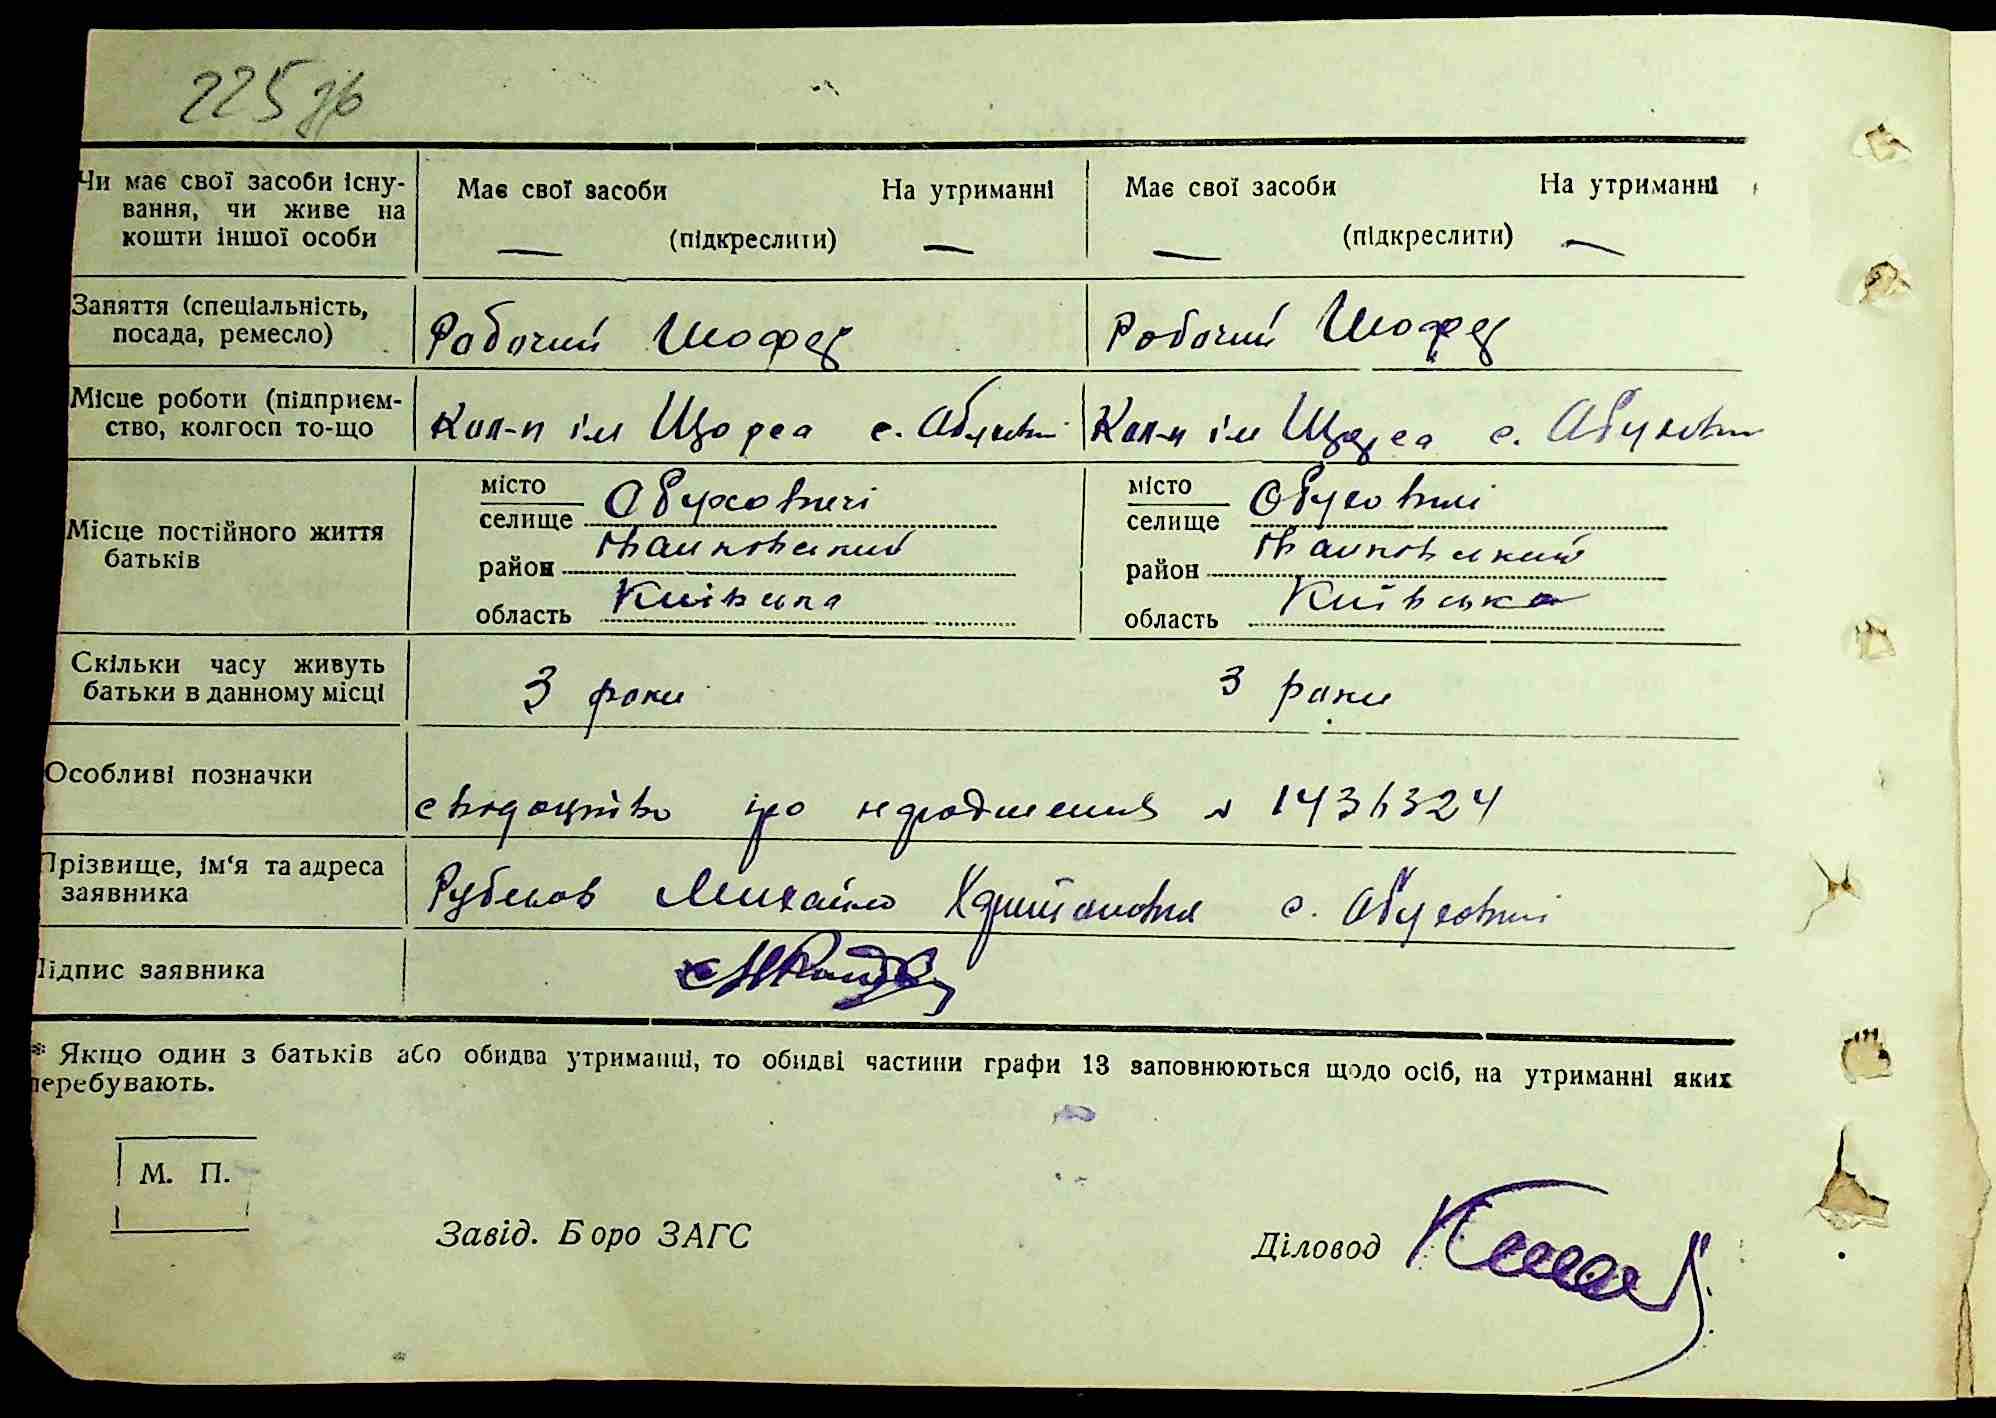 225 зв
Чи має свої засоби існу-
вання, чи живе на
кошти іншої особи
Має свої засоби На утриманні
(підкреслити)
— —
Має свої засоби На утриманні
(підкреслити)
— —
Заняття (спеціальність,
посада, ремесло)
Робочий Шофер
Робочий Шофер
Місце роботи (підприєм-
ство, колгосп то-що
Кол-п ім Щорса с.
Кол-п ім Щорса с.
Місце постійного життя
батьків
місто
селище Обуховичі
район Іванковський
область Київська
місто
селище Обуховичі
район Іванковський
область Київська
Скільки часу живуть
батьки в данному місці
3 роки
3 роки
Особливі позначки
свидоцтво про нородження №
Прізвище, ім'я та адреса
заявника
Михайло с. Обуховичі
Підпис заявника
* Якщо один з батьків або обидва утриманці, то обидві частини графи 13 заповнюються щодо осіб, на утриманні яких
перебувають.
М. П.
Завід. Б оро ЗАГС
Діловод